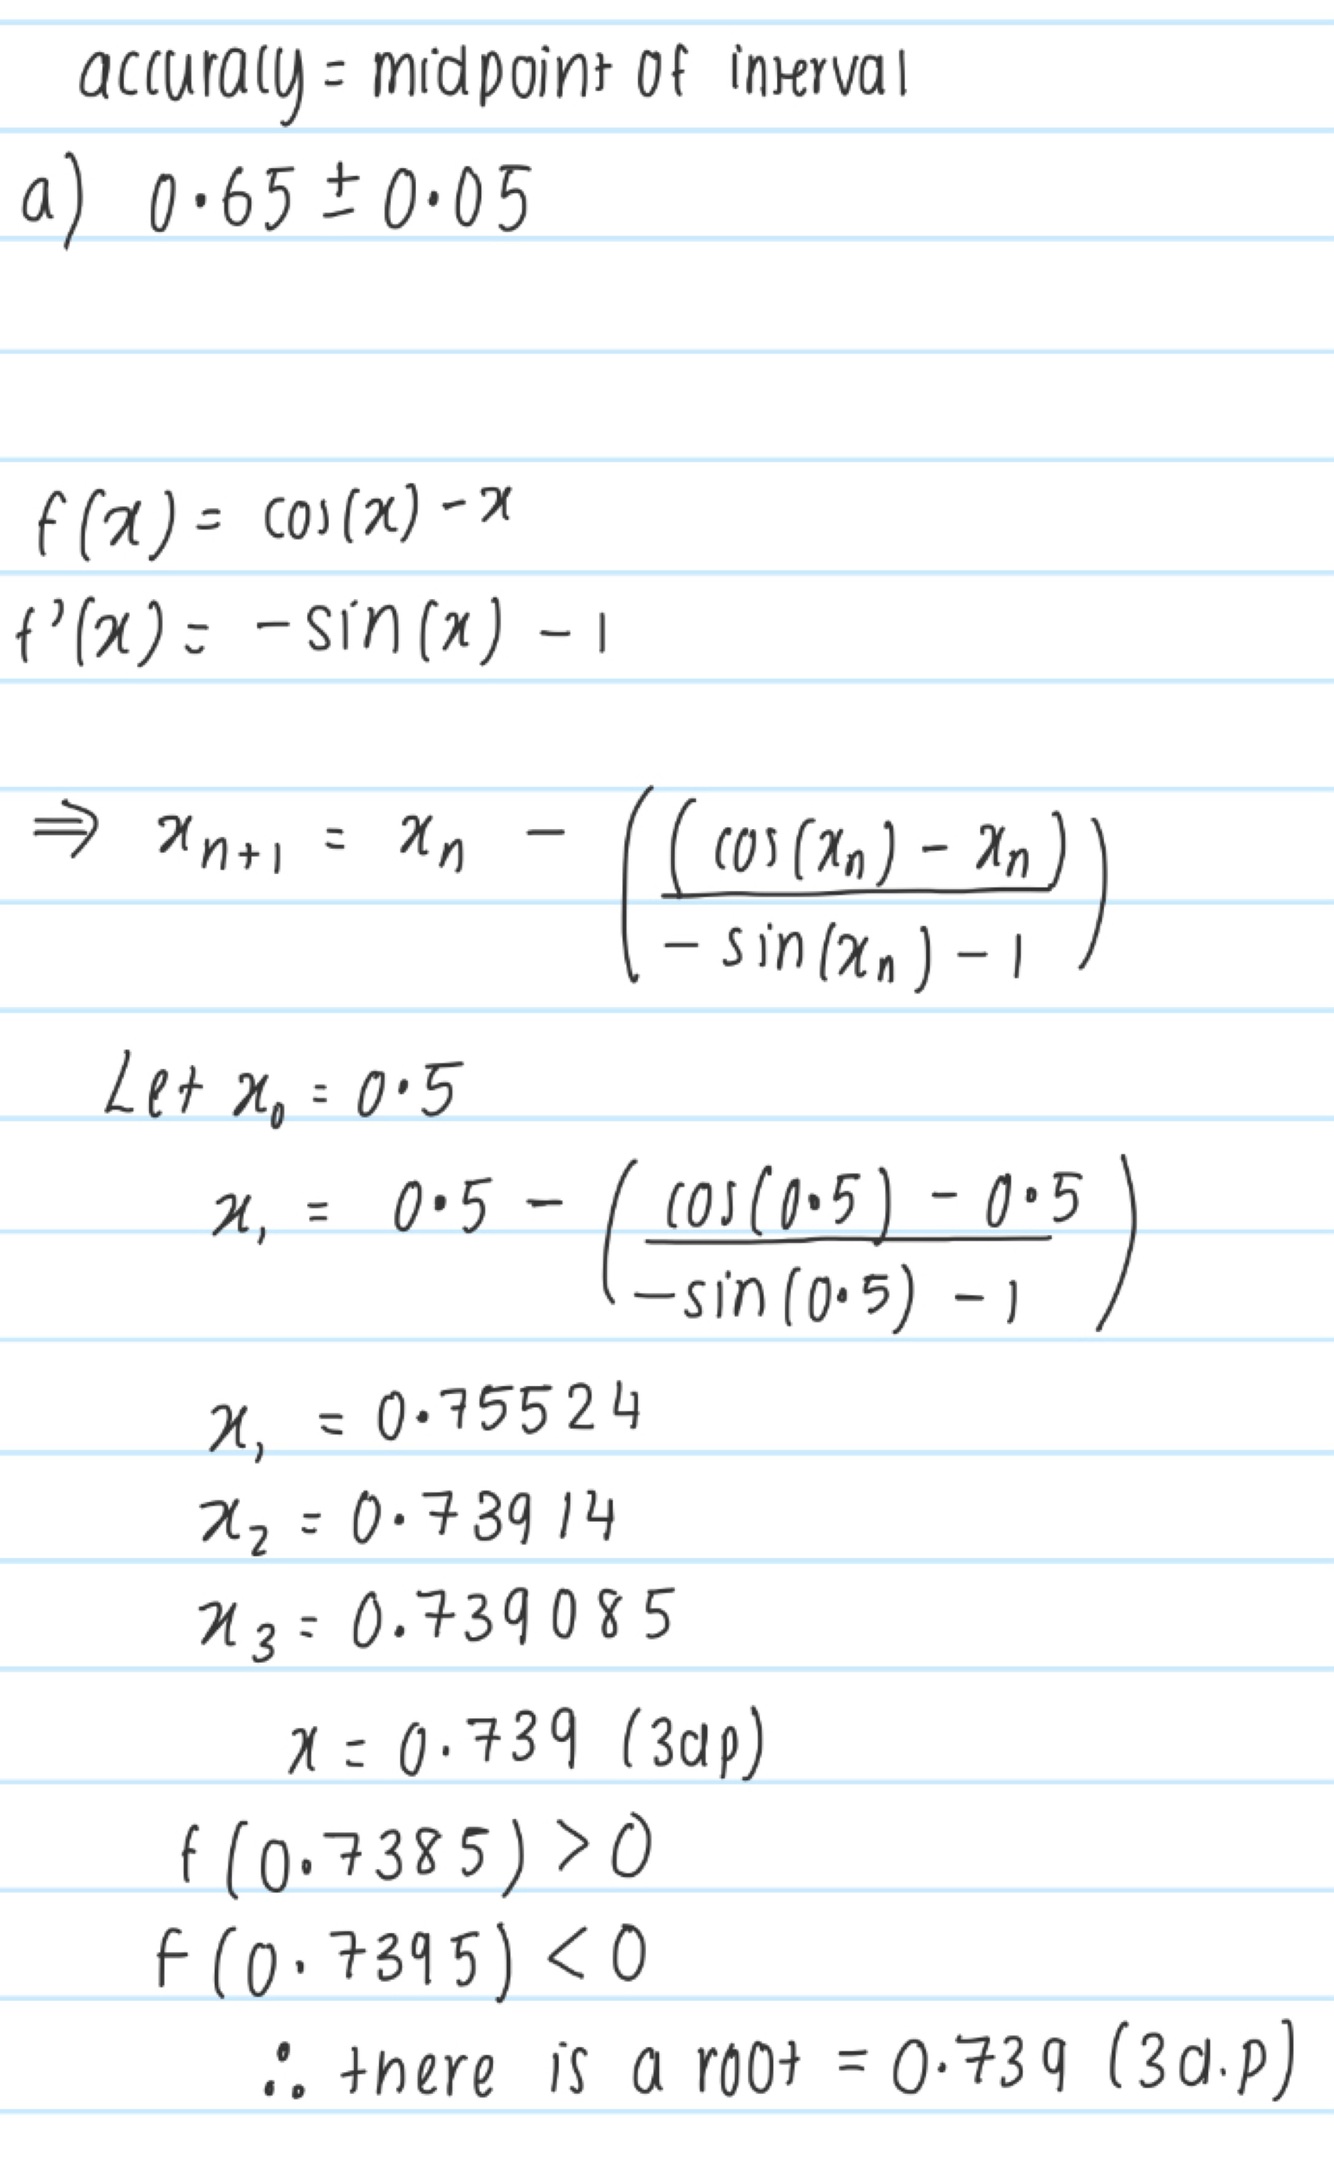 accuracy = midpoint of interval
a) 0.65 ± 0.05
f(x) = cos(x) - x
f'(x) = - sin(x) - 1
⇒ xₙ₊₁ = xₙ - ((cos(xₙ) - xₙ) / (- sin(xₙ) - 1))
Let x₀ = 0.5
x₁ = 0.5 - (cos(0.5) - 0.5 / -sin(0.5) - 1)
x₁ = 0.75524
x₂ = 0.73914
x₃ = 0.739085
x = 0.739 (3dp)
f(0.7385) > 0
f(0.7395) < 0
∴ there is a root = 0.739 (3d.p)